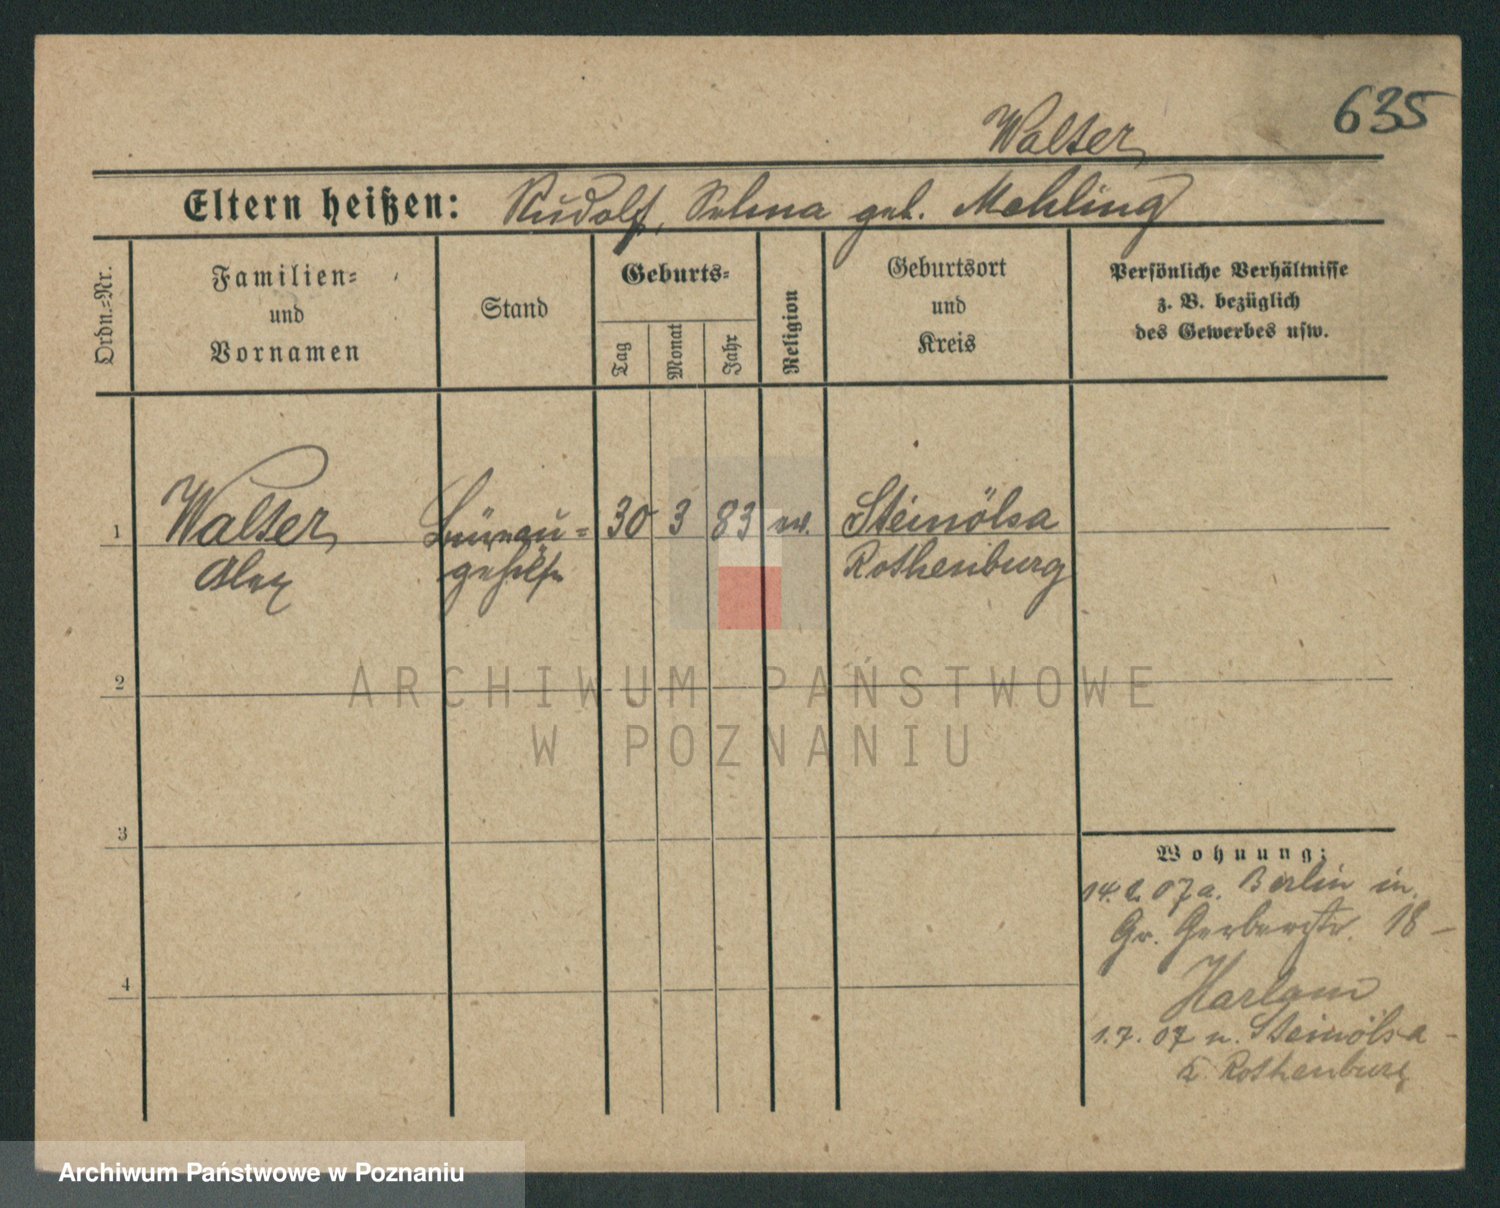 635
Walter
Eltern heißen: Rudolf, Selma geb. Mehling
Ordn.-Nr.
Familien-
und
Vornamen
Stand
Geburts-
Tag
Monat
Jahr
Religion
Geburtsort
und
Kreis
Persönliche Verhältnisse
z. B. bezüglich
des Gewerbes usw.
1 Walter 30 3 83 ev. Steinölsa
Alex gehilfe Rothenburg
2
3
4
Wohnung:
14. 07 a. Berlin in
Gr. Gerberstr. 18 –
Harlam
1. 7. 07 n. Steinölsa –
K. Rothenburg
ARCHIWUM PAŃSTWOWE
W POZNANIU
Archiwum Państwowe w Poznaniu